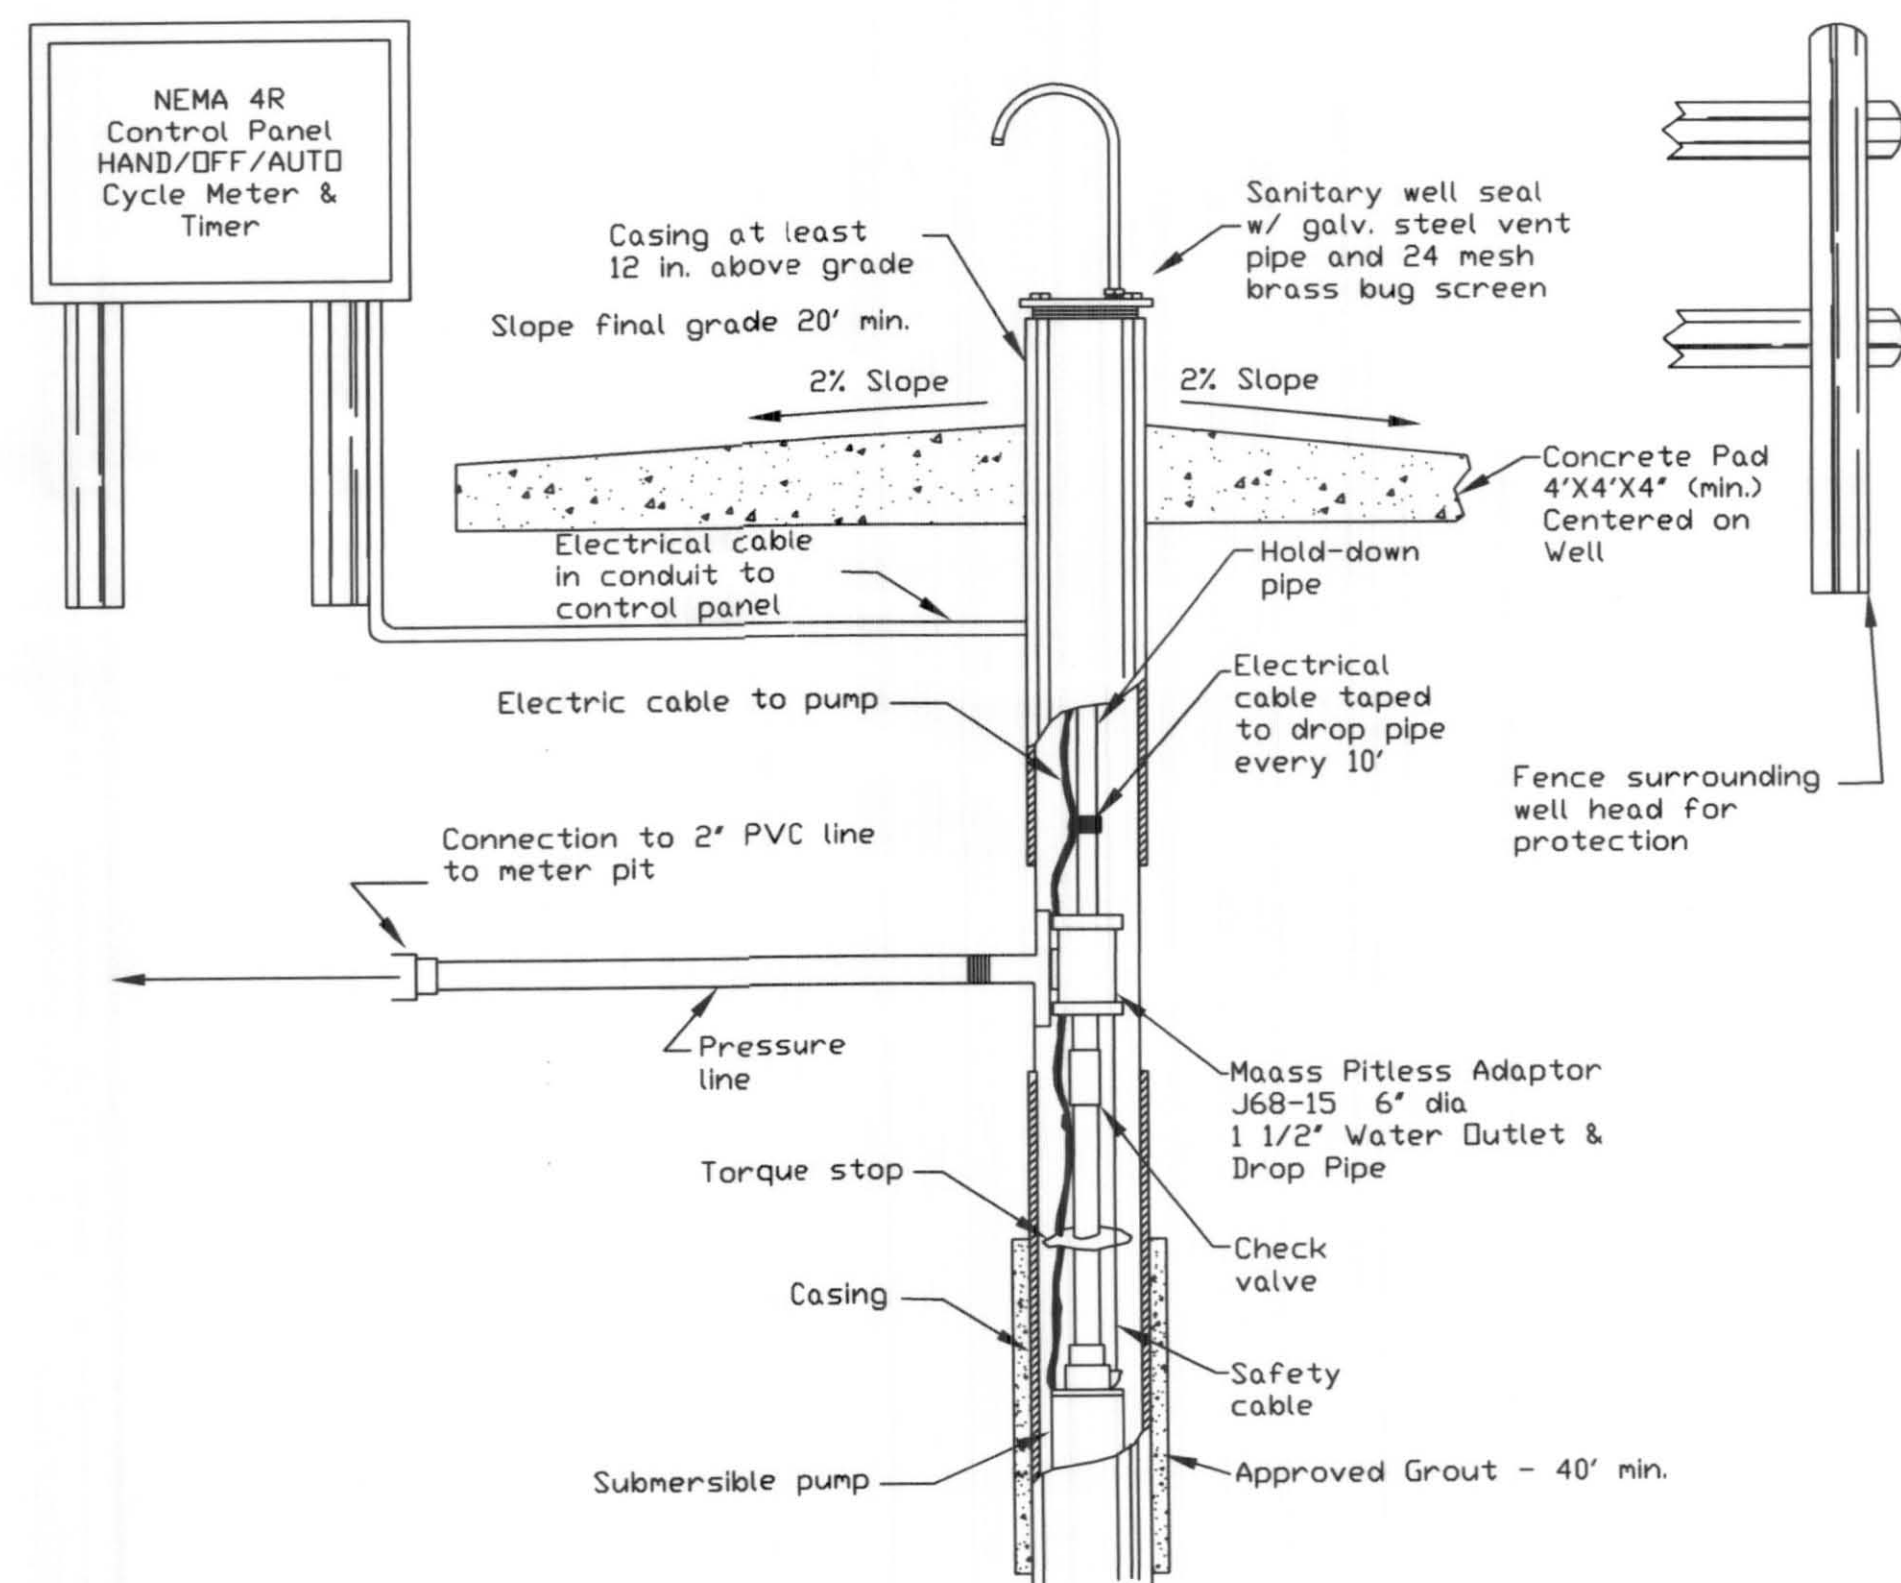 NEMA 4R
Control Panel
HAND/OFF/AUTO
Cycle Meter &
Timer
Casing at least
12 in. above grade
Slope final grade 20' min.
Sanitary well seal
w/ galv. steel vent
pipe and 24 mesh
brass bug screen
2% Slope
2% Slope
Concrete Pad
4'X4'X4" (min.)
Centered on
Well
Electrical cable
in conduit to
control panel
Hold-down
pipe
Electric cable to pump
Electrical
cable taped
to drop pipe
every 10'
Fence surrounding
well head for
protection
Connection to 2" PVC line
to meter pit
Pressure
line
Maass Pitless Adaptor
J68-15 6" dia
1 1/2" Water Outlet &
Drop Pipe
Torque stop
Check
valve
Casing
Safety
cable
Submersible pump
Approved Grout - 40' min.